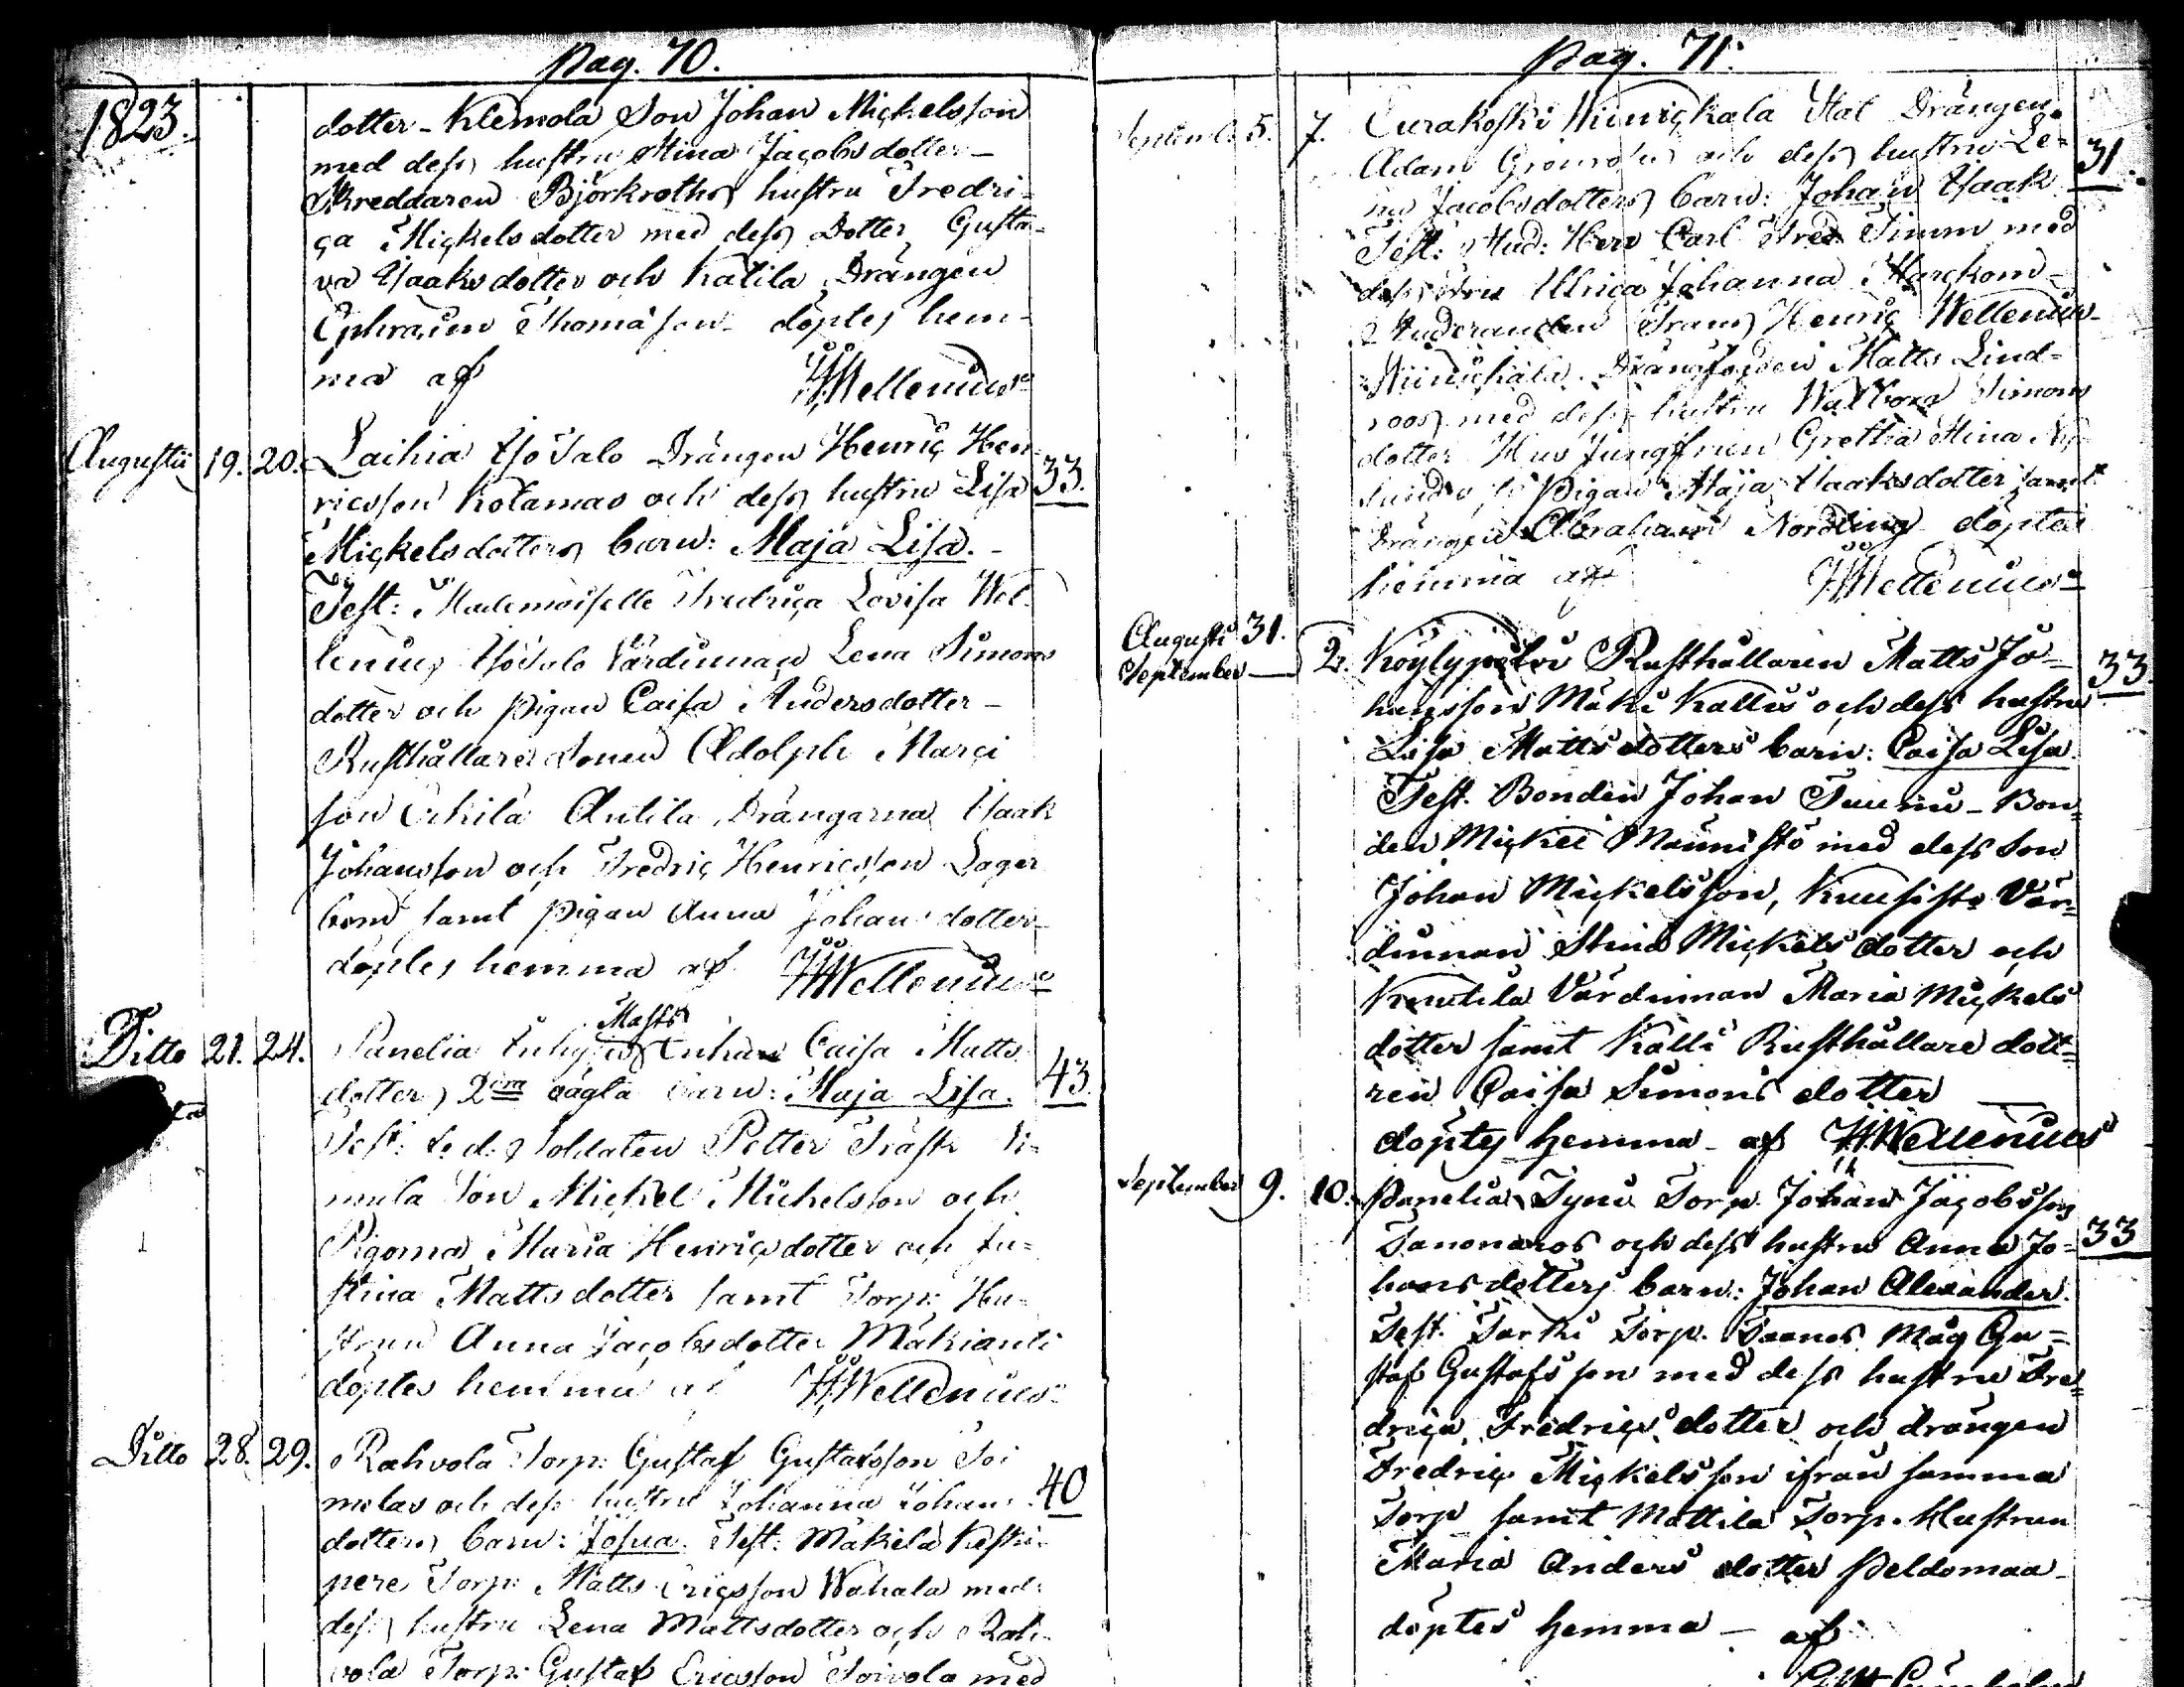 pag. 70.
1823.
dotter - Klemola Son Johan Mickelsson
med dess hustru Stina Jacobsdotter -
Skreddaren Björkroths hustru Fredri-
ca Mickelsdotter med dess Dotter Gusta-
va Isaaksdotter och Katila Drängen
Ephraim Thomasson - döptes hem-
ma af HWellenius
Augusti 19. 20. Laihia Iso Salo Drängen Henric Hen-
ricsson Kotamas och dess hustru Lisa 33.
Mickelsdotters barn: Maja Lisa. -
Test: Mademoiselle Fredrica Lovisa Wel-
lenius, Iso Salo Värdinnan Lena Simons
dotter och pigan Caisa Andersdotter -
Rusthållare Sonen Adolph Marci
son Erkilä Antila, Drängarna Isaak
Johansson och Fredric Henricsson Lager
bom samt pigan Anna Johansdotter -
döptes hemma af HWellenius
Ditto 21. 24. Panelia Enkan Caisa Matts
dotters 2dra oägta barn: Maja Lisa. 43.
Test: Soldaten Petter Träsk
mula Son Mickel Michelsson och
Pigorna Maria Henricsdotter och Ju-
stina Mattsdotter samt Torp: Hu-
strun Anna Jacobsdotter Mäkianti
döptes hemma af HWellenius
Ditto 28. 29. Rahvola Torp: Gustaf Gustafsson Toi
molas och dess hustru Johanna Johans 40
dotters barn: Josua. Test: Mäkilä Keski-
pere Torp: Matts Ericsson Wahala med
dess hustru Lena Mattsdotter och Rah-
vola Torp: Gustaf Ericsson Toivola med
pag. 71.
September 5. 7. Eurakoski Stal Drängen
Adam Gronroos och dess hustru Le- 31.
na Jacobsdotters barn: Johan Isaak
Test: Stud: Herr Carl Fred: Timm med
dess Fru Ulrica Johanna Marckom-
Studeranden Frans Henric Wellenius -
Matts Lind-
roos med dess hustru Walborg Simons
dotter Hus Jungfrun Gretha Stina Ny-
Pigan Maja Isaaksdotter samt
Drängen Abraham Nordling - döptes
hemma af HWellenius
Augusti 31.
September 2. Köylypolvi Rusthållaren Matts Jo- 33
hansson Mäki Kallis och dess hustru
Lisa Mattsdotters barn: Caisa Lisa.
Test. Bonden Johan Tuumi - Bon-
den Mickel Männistö med dess Son
Johan Mickelsson, Kuusisto Vär-
dinnan Stina Mickelsdotter och
Knutila Värdinnan Maria Mickels
dotter samt Källi Rusthållare dott-
ren Caisa Simons dotter
döptes hemma - af HWellenius
September 9. 10. Panelia Tyni Torp. Johan Jacobsson
Tanonaros och dess hustru Anna Jo- 33
hansdotters barn: Johan Alexander.
Test. Torki Torp. Taanos Måg Gu-
staf Gustafsson med dess hustru Fre-
drica Fredrics dotter och drängen
Fredric Mickelsson ifrån samma
Torp samt Mattila Torp. Hustrun
Maria Anders dotter Peldomaa -
döptes hemma - af